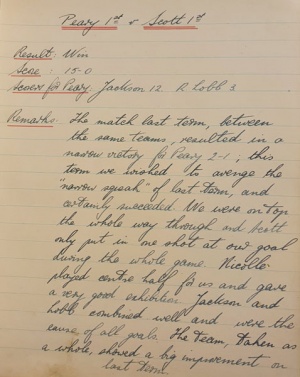 Peary 1st v Scott 1st
Result: Win
Score: 15-0
Scorers for Peary Jackson 12 R Lobb 3
Remarks. The match last term, between
the same teams, resulted in a
narrow victory for Peary 2-1; this
term we wished to avenge the
"narrow squeak" of last term, and
certainly succeeded. We were on top
the whole way through and Scott
only put in one shot at our goal
during the whole game. Nicolle
played centre half for us and gave
a very good exhibition. Jackson and
Lobb combined well and were the
cause of all goals. The team, taken as
a whole, showed a big improvement on
last term.